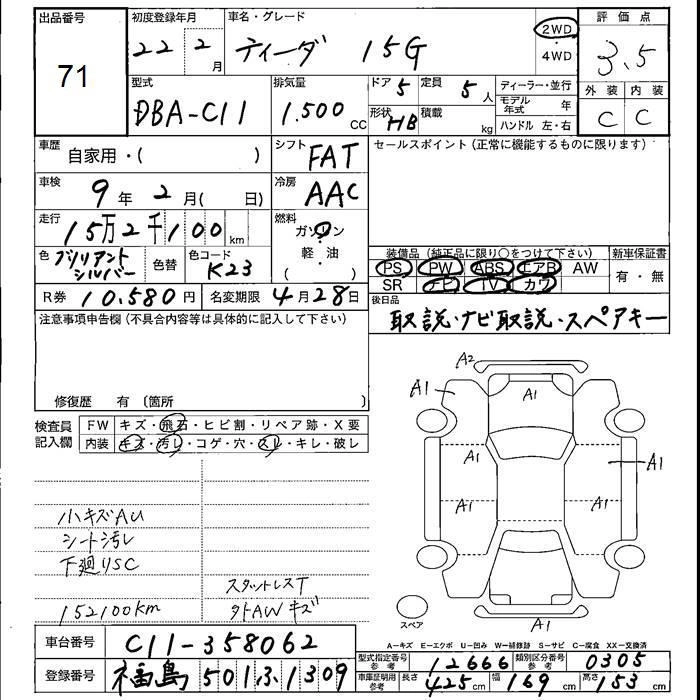 出品番号 初度登録年月 車名・グレード 2WD 評価点
71 22年 2月 ティーダ 15G ・ 4WD 3.5
型式 排気量 ドア 5 定員 5人 ディーラー・並行 外装 内装
DBA-C11 1.500cc 形状 HB 積載 kg モデル年式 年 C C
ハンドル 左・右
車歴 自家用・( ) シフト FAT セールスポイント (正常に機能するものに限ります)
車検 9年 2月( 日) 冷房 AAC
走行 15万2千100km 燃料 ガソリン・軽・油( )
色 ブリリアントシルバー 色替 色コード K23
装備品 (純正品に限り○をつけて下さい) 新車保証書
PS PW ABS エアB AW 有・無
SR ナビ TV カワ
R券 10.580円 名変期限 4月28日 後日品
取説・ナビ取説・スペアキー
注意事項申告欄 (不具合内容等は具体的に記入して下さい)
修復歴 有 (箇所 )
検査員記入欄 FW キズ・飛石・ヒビ割・リペア跡・X要
内装 キズ・汚レ・コゲ・穴・スレ・キレ・破レ
A2
A1 A1
A1 A1 A1
A1 A1
A1
スペア
小キズAU
シート汚レ
下廻リSC
スタットレスT
152100km 外AWキズ
A－キズ E－エクボ U－凹み W－補修跡 S－サビ C－腐食 XX－交換済
車台番号 C11-358062
型式指定番号 参考 12666 類別区分番号 参考 0305
登録番号 福島 501 ふ 1309
車庫証明用 参考 長さ 425cm 幅 169cm 高さ 153cm